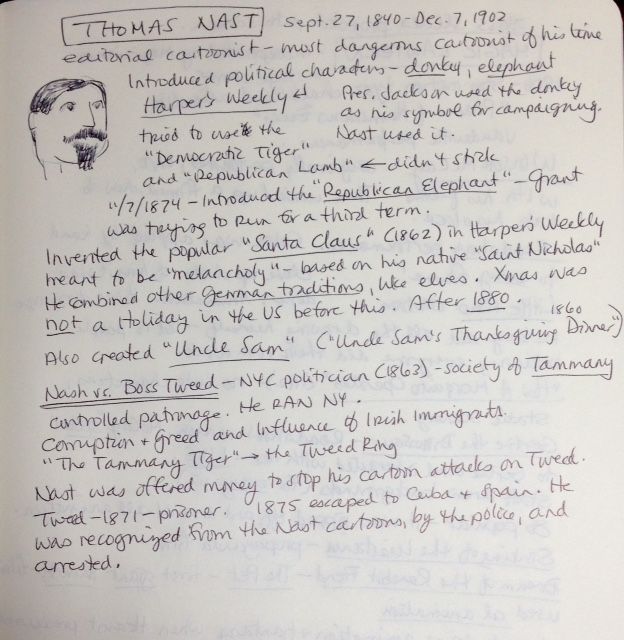 THOMAS NAST Sept. 27, 1840 - Dec. 7, 1902
editorial cartoonist - most dangerous cartoonist of his time
Introduced political characters - donkey, elephant
Harper's Weekly
Pres. Jackson used the donkey
as his symbol for campaigning.
Nast used it.
tried to use the
"Democratic Tiger"
and "Republican Lamb" ← didn't stick
11/7/1874 - Introduced the "Republican Elephant" - Grant
was trying to run for a third term.
Invented the popular "Santa Claus" (1862) in Harper's Weekly
meant to be "melancholy" - based on his native "Saint Nicholas"
He combined other german traditions, like elves. Xmas was
not a Holiday in the US before this. After 1880.
Also created "Uncle Sam" ("Uncle Sam's Thanksgiving Dinner") 1860
Nash vs. Boss Tweed - NYC politician (1863) - society of Tammany
controlled patronage. He RAN NY.
Corruption + Greed and Influence of Irish Immigrants.
"The Tammany Tiger" → the Tweed Ring
Nast was offered money to stop his cartoon attacks on Tweed.
Tweed - 1871 - prisoner. 1875 escaped to Cuba + Spain. He
was recognized from the Nast cartoons, by the police, and
arrested.